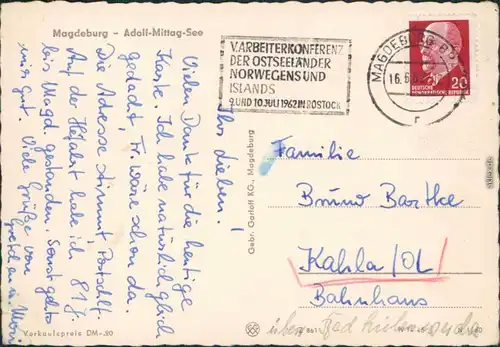 Magdeburg - Adolf-Mittag-See
Ihr Lieben!
Vielen Dank für die heutige
Karte. Ich habe natürlich gleich
gedacht, Fr. wäre schon da.
Die Adresse stimmt, Postltz.
Auf der Hefahrt habe ich 81 J.
bis Magd. gestanden. Sonst geht
mir gut. Viele Grüße von
Verkaufspreis DM -.20
Gebr. Garloff KG., Magdeburg
V. ARBEITERKONFERENZ
DER OSTSEELÄNDER
NORWEGENS UND
ISLANDS
9. UND 10. JULI 1962 IN ROSTOCK
MAGDEBURG
16.6.62
r
20
DEUTSCHE
DEMOKRATISCHE REPUBLIK
Familie
Bruno Bartke
Kahla/OL
Bahnhaus
über Bad Liebenwerda